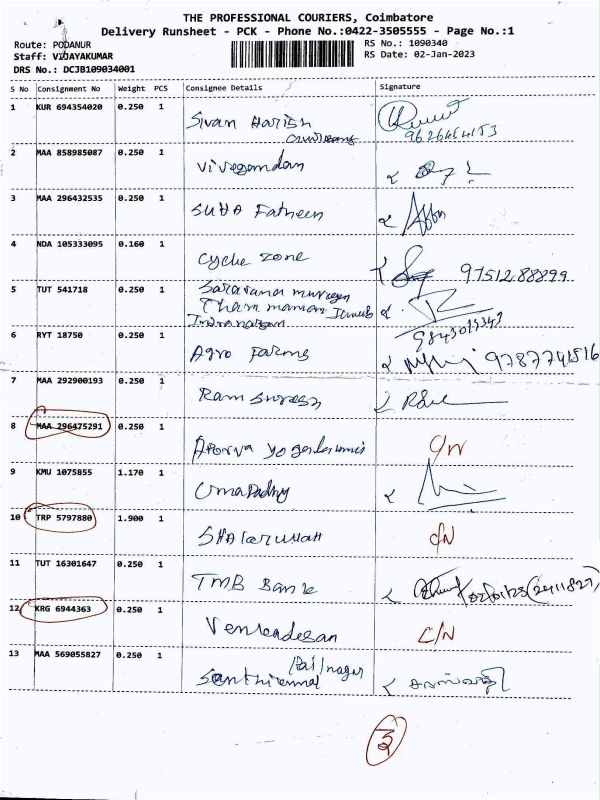 THE PROFESSIONAL COURIERS, Coimbatore
Delivery Runsheet - PCK - Phone No.:0422-3505555 - Page No.:1
Route: PODANUR RS No.: 1090340
Staff: VIJAYAKUMAR RS Date: 02-Jan-2023
DRS No.: DCJB109034001
S No Consignment No Weight PCS Consignee Details Signature
1 KUR 694354020 0.250 1 Sivan Harish
2 MAA 858985087 0.250 1 Vivegandan
3 MAA 296432535 0.250 1 SUHA Fatheen
4 NDA 105333095 0.160 1 Cycle Zone 97512.88899
5 TUT 541718 0.250 1 Saravana murugan
6 RYT 18750 0.250 1 Agro Farms
7 MAA 292900193 0.250 1 Ram Suresh
8 MAA 296475291 0.250 1 C/N
9 KMU 1075855 1.170 1 Uma
10 TRP 5797880 1.900 1 C/N
11 TUT 16301647 0.250 1 TMB Bank
12 KRG 6944363 0.250 1 Venkadesan C/N
13 MAA 569055827 0.250 1
3